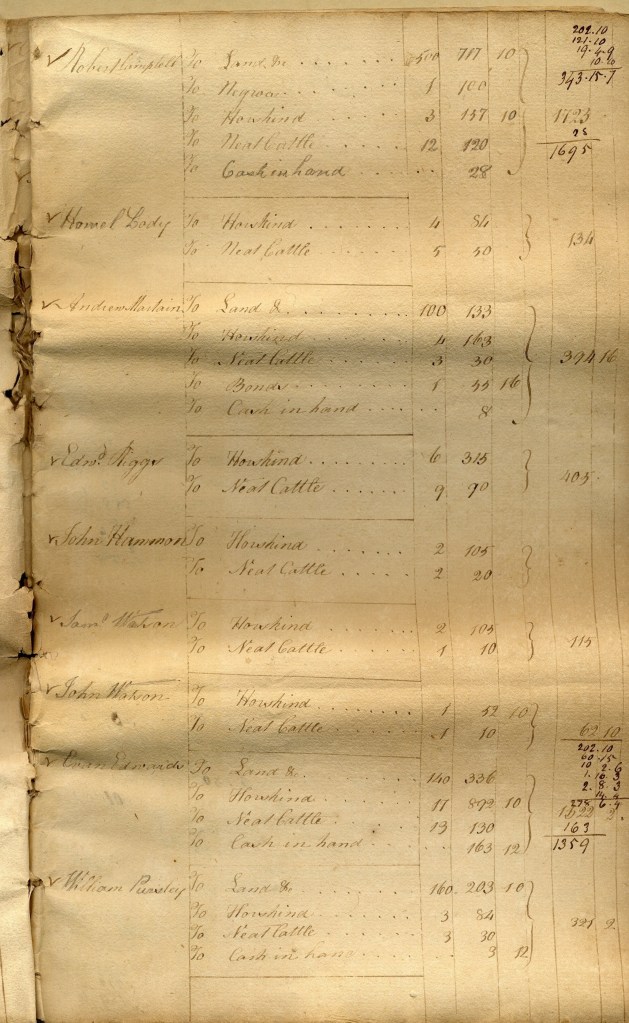 202.10
121.10
✓ Robert Campbell To Land &c . . . . . . 500 717 10 19.4.9
10.10
To Negroes . . . . . . 1 100 343.15.7
To Horskind . . . . . 3 137 10 1723
28
To Neat Cattle . . . . . 12 120 1695
To Cash in hand . . . . . 28
✓ Howel Body To Horskind . . . . . . 4 84
To Neat Cattle . . . . . . 5 50 134
✓ Andrew Martain To Land & . . . . . . . 100 133
To Horskind . . . . . . 4 163
To Neat Cattle . . . . . 3 30 394 16
To Bonds . . . . . . . 1 55 16
To Cash in hand . . . . . 8
✓ Edwd. Riggs To Horskind . . . . . . 6 315
To Neat Cattle . . . . . 9 90 405
✓ John Hammon To Horskind . . . . . . 2 105
To Neat Cattle . . . . . 2 20
✓ Saml. Watson To Horskind . . . . . . . 2 105
To Neat Cattle . . . . . 1 10 115
✓ John Watson To Horskind . . . . . . . 1 52 10
To Neat Cattle . . . . . 1 10 62 10
202.10
60.15
✓ Evan Edwards To Land & . . . . . . . 140 336 10 2.6
1.16.3
2.8.3
To Horskind . . . . . . 17 892 10 278.6.4
To Neat Cattle . . . . . 13 130 1522 2
163
To Cash in hand . . . . . 163 12 1359
✓ William Pursley To Land & . . . . . . . 160 203 10
To Horskind . . . . . . 3 84
To Neat Cattle . . . . . 3 30 321 2
To Cash in hand . . . . . 3 12